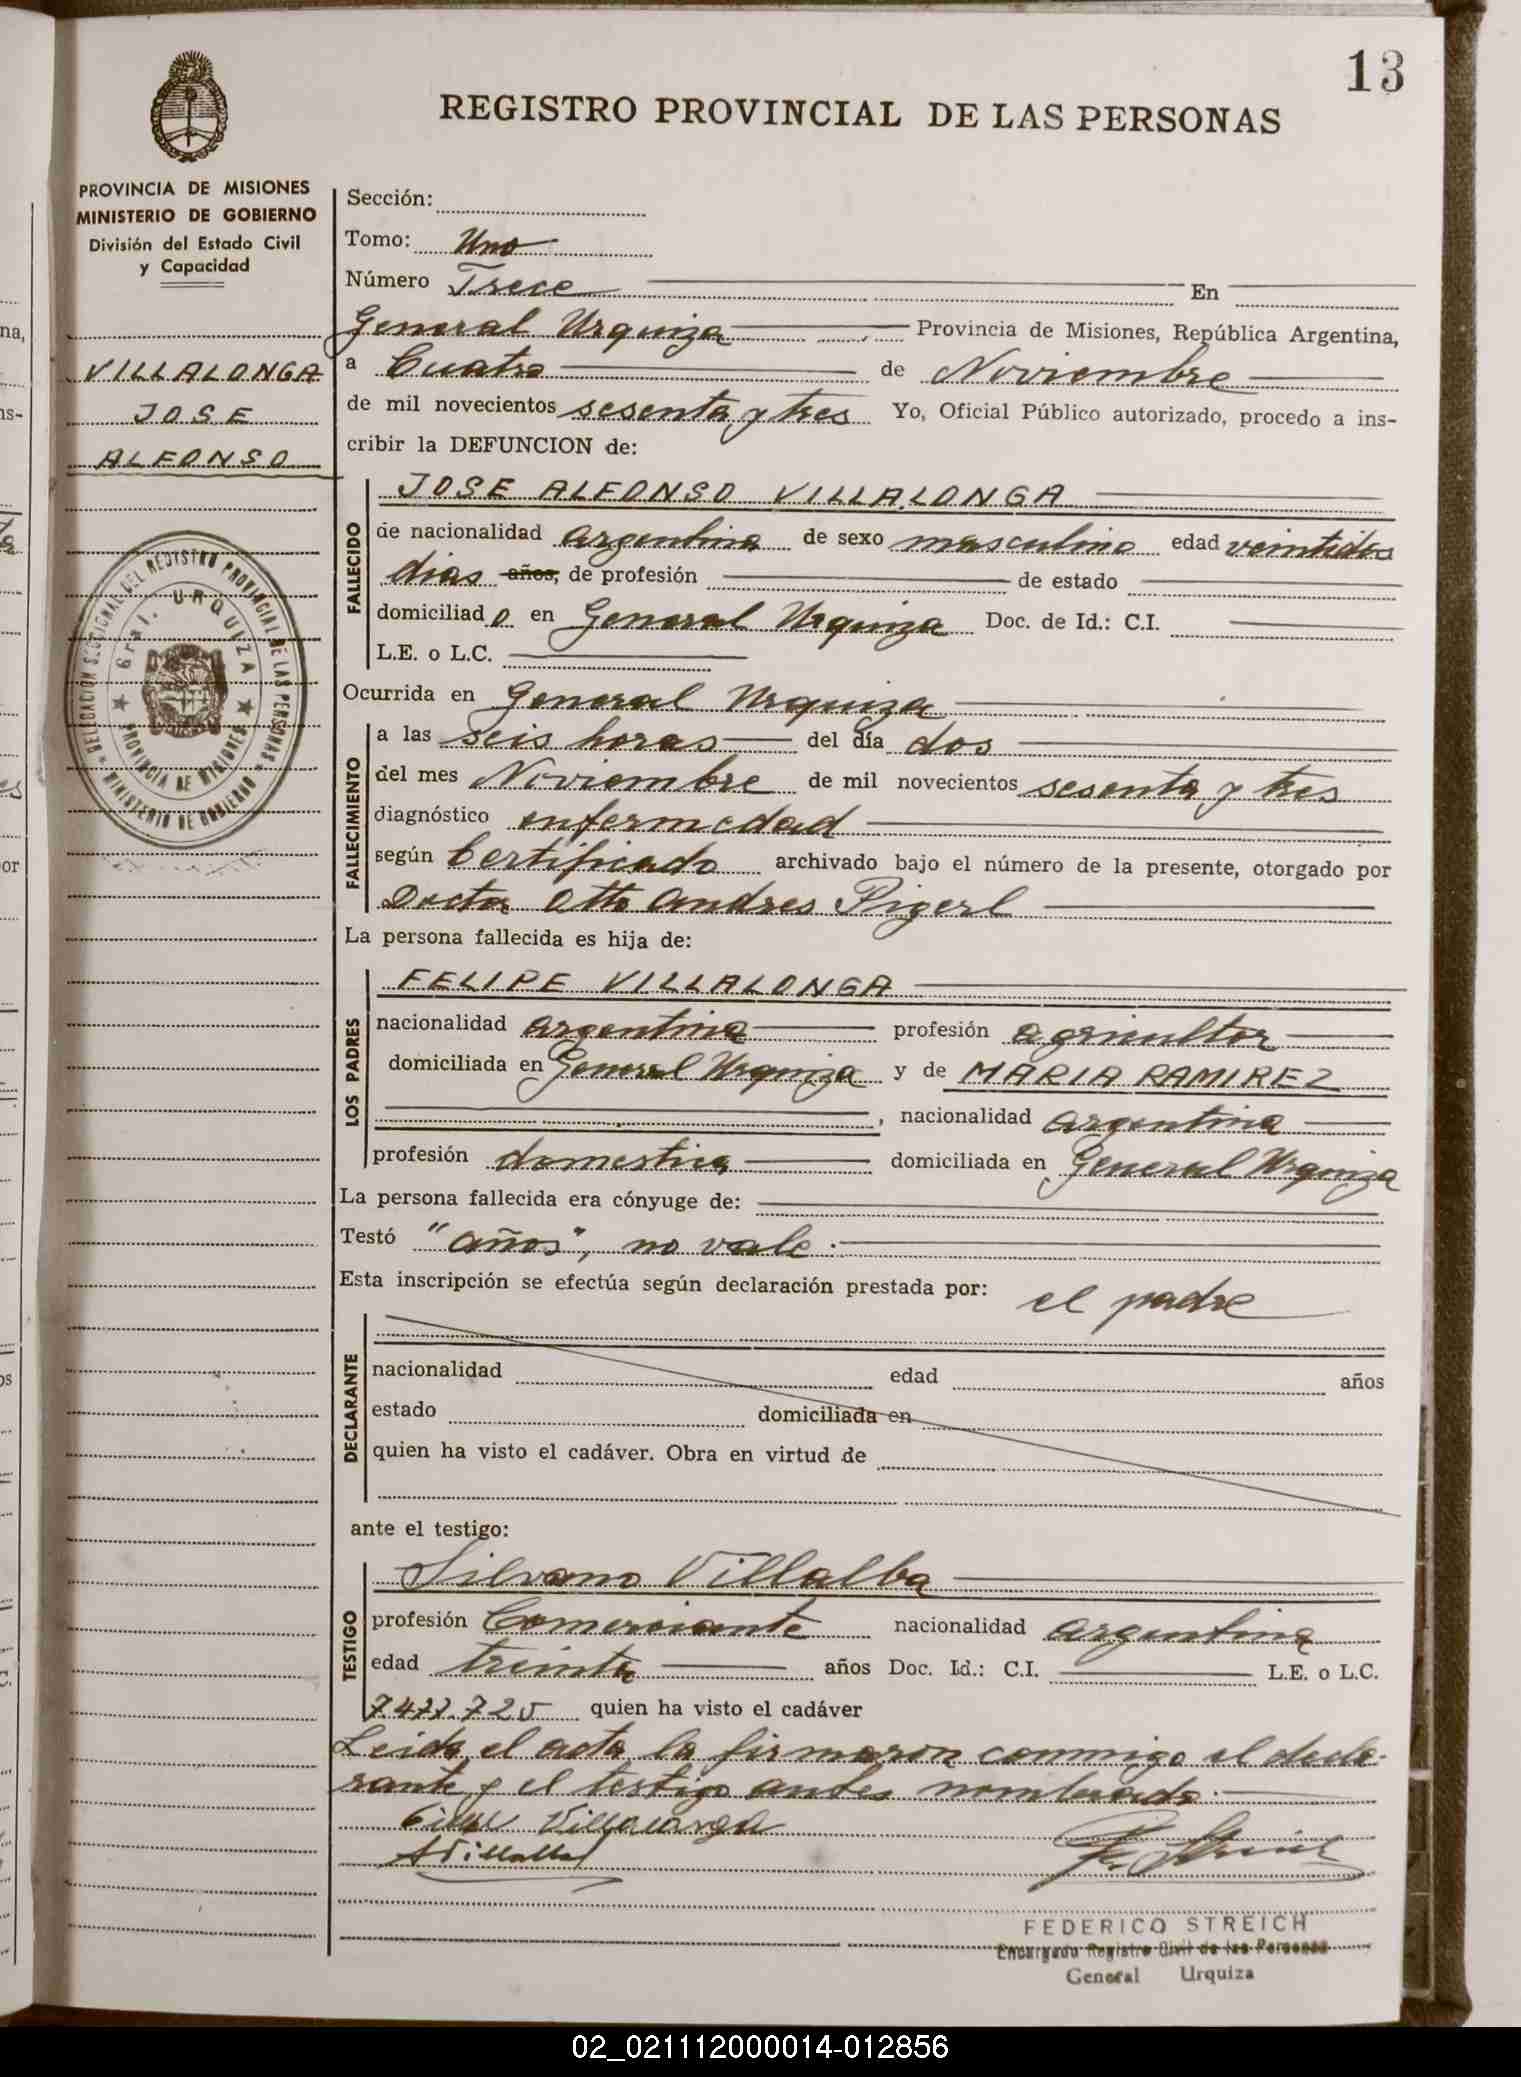 13
REGISTRO PROVINCIAL DE LAS PERSONAS
PROVINCIA DE MISIONES
MINISTERIO DE GOBIERNO
División del Estado Civil
y Capacidad
VILLALONGA
JOSE
ALFONSO
DELEGACION SECCIONAL DEL REGISTRO PROVINCIAL DE LAS PERSONAS
Gral. URQUIZA
PROVINCIA DE MISIONES
MINISTERIO DE GOBIERNO
Sección:
Tomo: Uno
Número Trece En
General Urquiza Provincia de Misiones, República Argentina,
a Cuatro de Noviembre
de mil novecientos sesenta y tres Yo, Oficial Público autorizado, procedo a ins-
cribir la DEFUNCION de:
FALLECIDO
JOSE ALFONSO VILLALONGA
de nacionalidad argentina de sexo masculino edad veintidos
dias años, de profesión de estado
domiciliado en General Urquiza Doc. de Id.: C.I.
L.E. o L.C.
Ocurrida en General Urquiza
FALLECIMIENTO
a las seis horas del día dos
del mes Noviembre de mil novecientos sesenta y tres
diagnóstico enfermedad
según Certificado archivado bajo el número de la presente, otorgado por
Doctor Otto Andres Pigerl
La persona fallecida es hija de:
LOS PADRES
FELIPE VILLALONGA
nacionalidad argentina profesión agricultor
domiciliada en General Urquiza y de MARIA RAMIREZ
, nacionalidad argentina
profesión domestica domiciliada en General Urquiza
La persona fallecida era cónyuge de:
Testó "años", no vale.
Esta inscripción se efectúa según declaración prestada por: el padre
DECLARANTE
nacionalidad edad años
estado domiciliada en
quien ha visto el cadáver. Obra en virtud de
ante el testigo:
TESTIGO
Silvano Villalba
profesión Comerciante nacionalidad argentina
edad treinta años Doc. Id.: C.I. L.E. o L.C.
7.477.725 quien ha visto el cadáver
Leida el acta la firmaron conmigo el decla-
rante y el testigo antes nombrado.
Villalonga
SVillalba
F. Streich
FEDERICO STREICH
Encargado Registro Civil de las Personas
General Urquiza
02_021112000014-012856